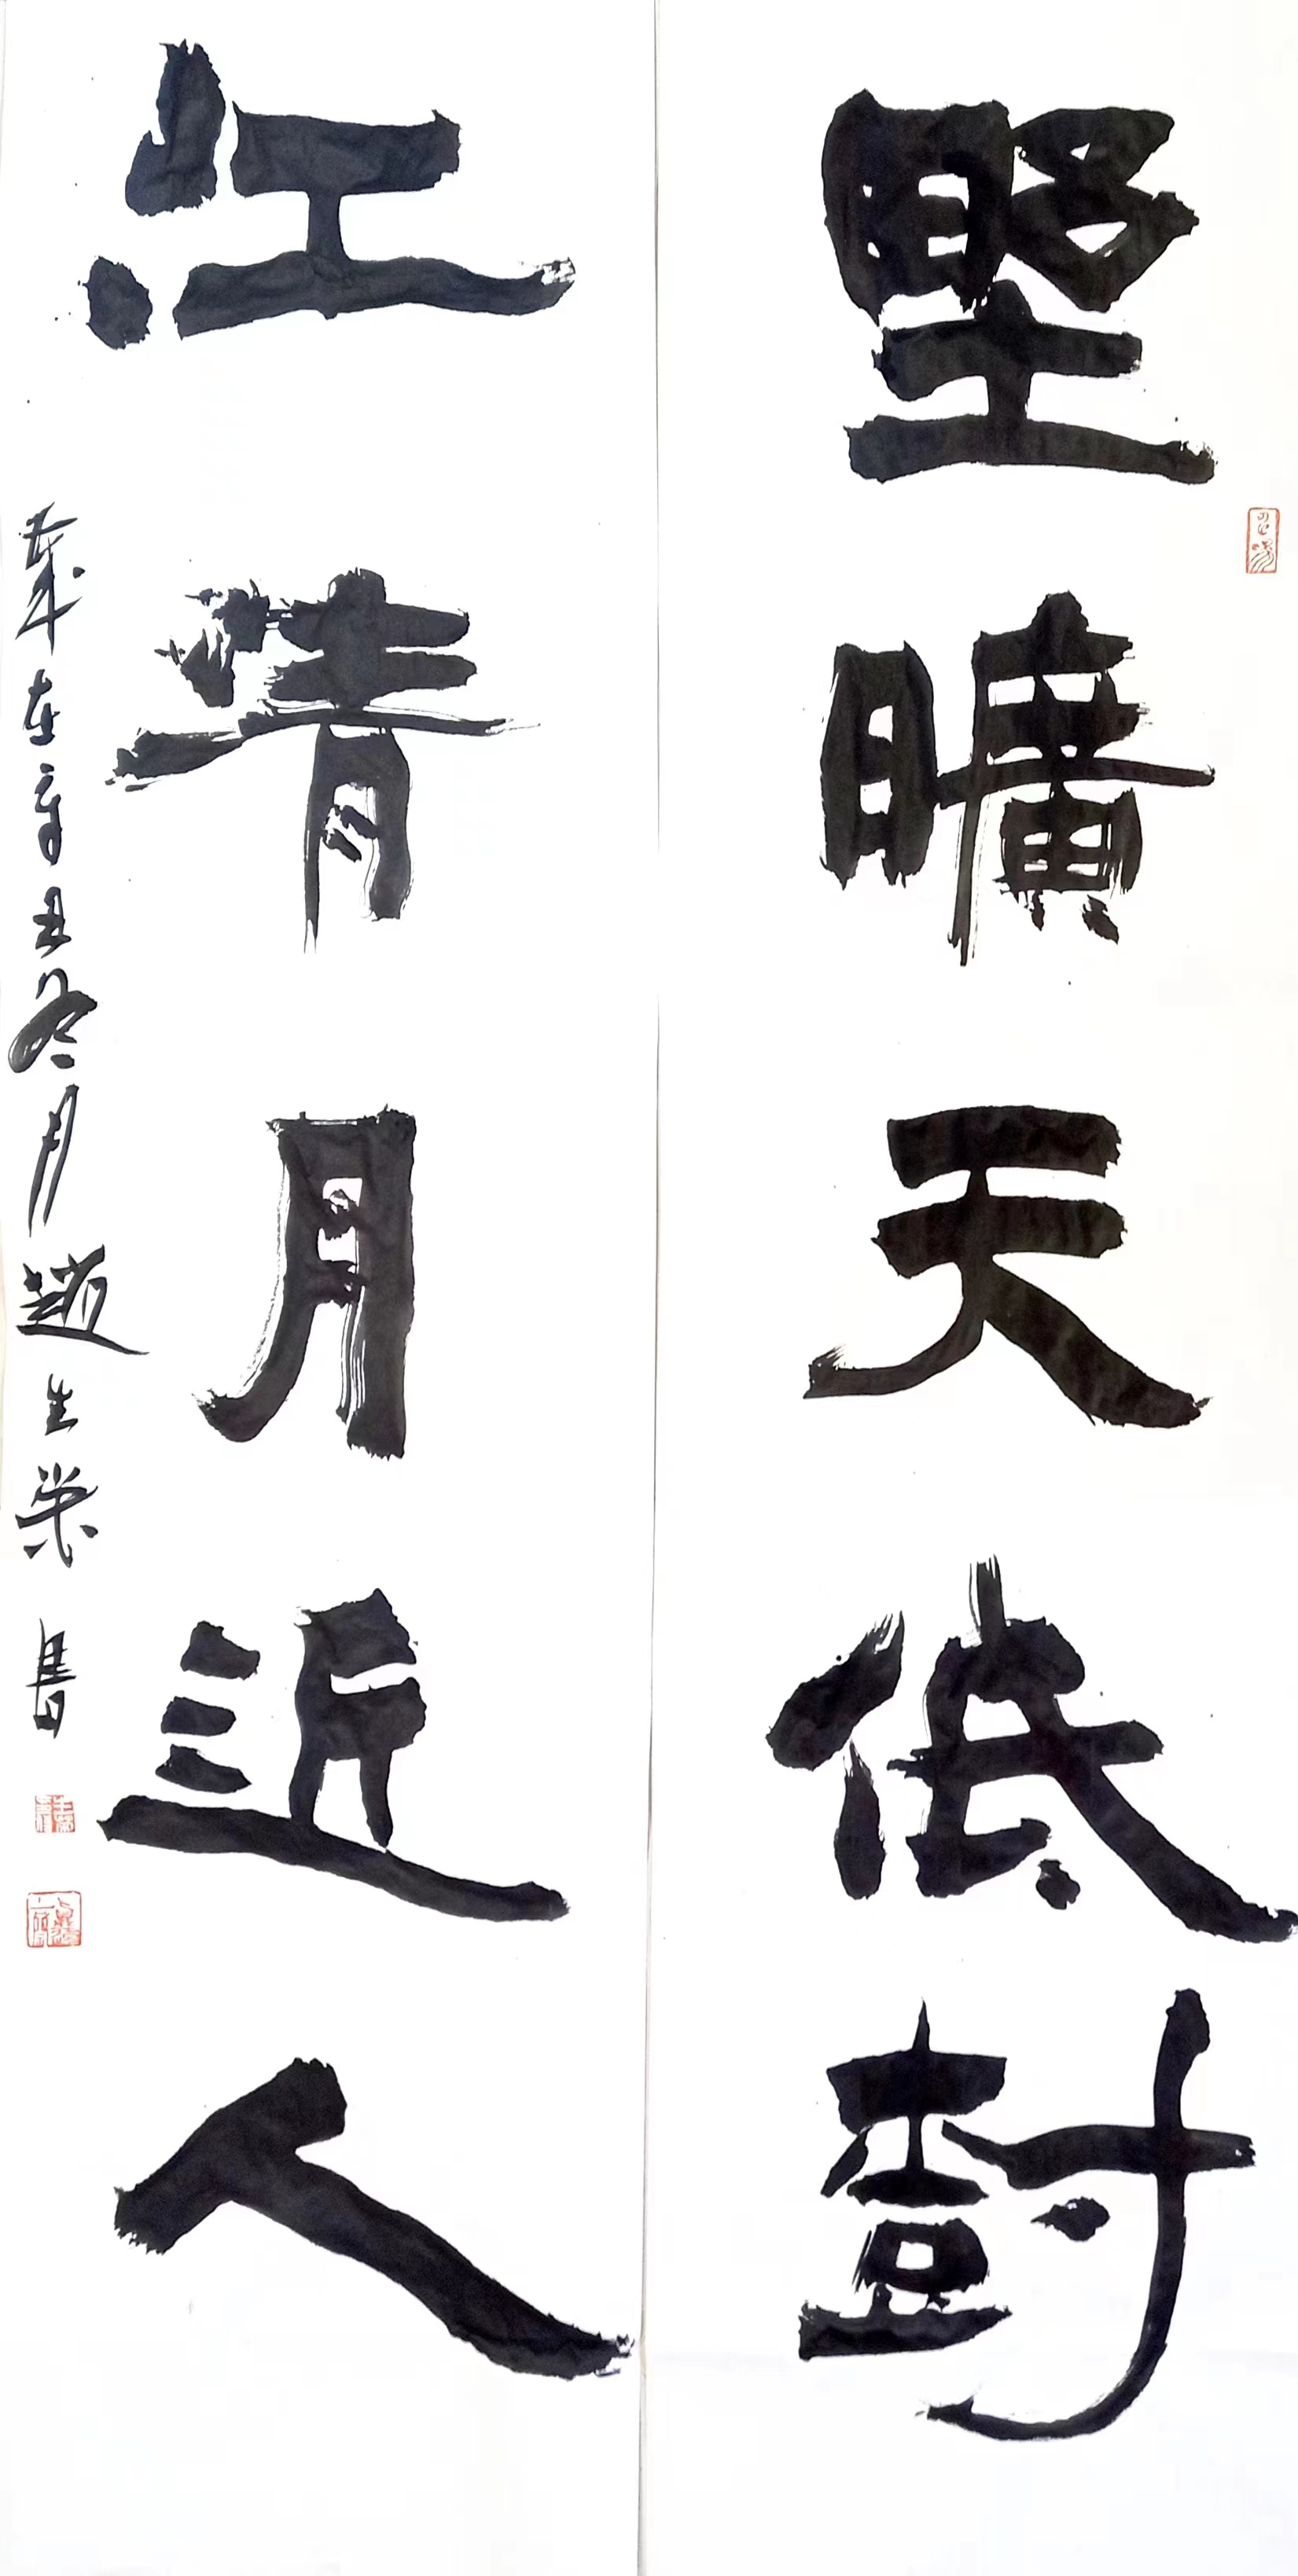 野曠天低樹
江清月近人
歲在辛丑冬月趙生榮書